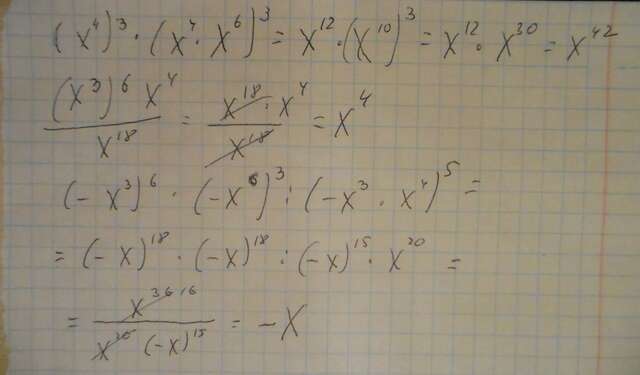 (x⁴)³ · (x⁴ · x⁶)³ = x¹² · (x¹⁰)³ = x¹² · x³⁰ = x⁴²
(x³)⁶ x⁴ / x¹⁸ = x¹⁸ · x⁴ / x¹⁸ = x⁴
(- x³)⁶ · (-x⁶)³ : (-x³ · x⁴)⁵ =
= (- x)¹⁸ · (-x)¹⁸ : (-x)¹⁵ · x²⁰ =
= x³⁶ ¹⁶ / x²⁰ (-x)¹⁵ = - x